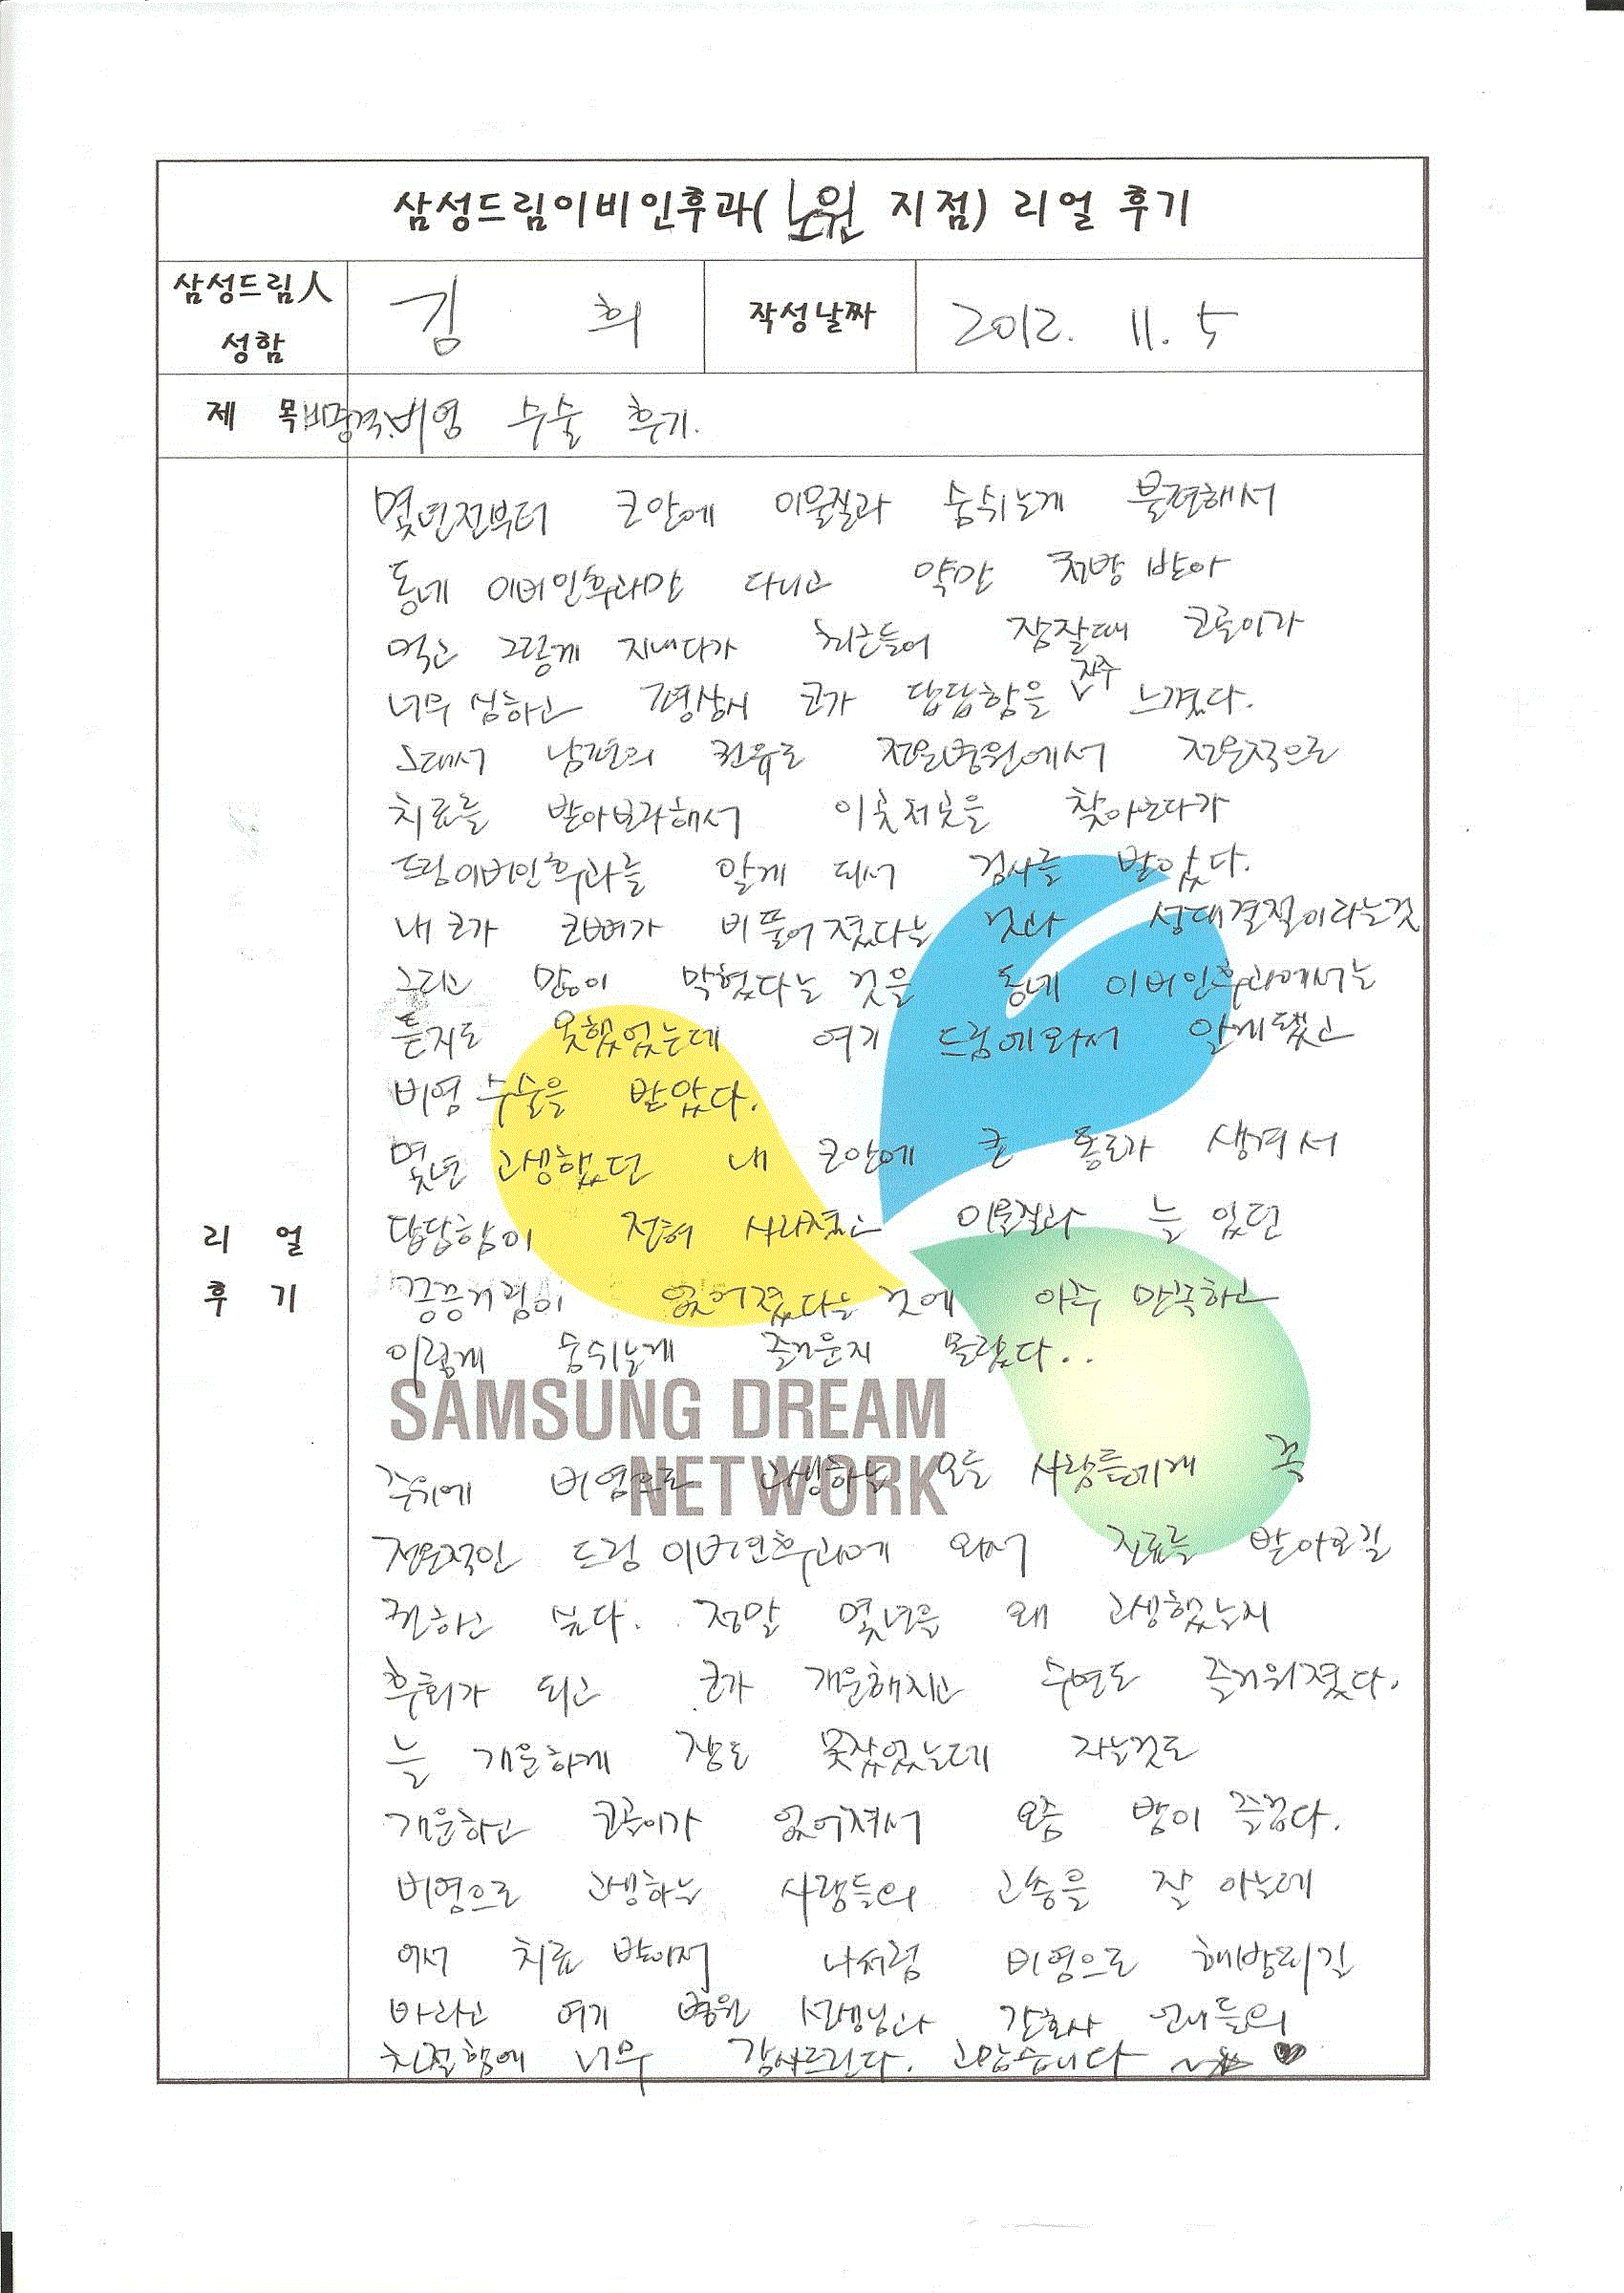 삼성드림이비인후과(노원 지점) 리얼 후기
삼성드림人 성함
김 희
작성날짜
2012. 11. 5
제 목
비중격.비염 수술 후기.
리 얼 후 기
몇년전부터 코안에 이물질과 숨쉬는게 불편해서
동네 이비인후과만 다니고 약만 처방 받아
먹고 그렇게 지내다가 최근들어 잠잘때 코골이가
너무 심하고 평상시 코가 답답함을 자주 느꼈다.
그래서 남편의 권유로 전문병원에서 전문적으로
치료를 받아보라해서 이곳저곳을 찾아보다가
드림이비인후과를 알게 되서 검사를 받았다.
내 코가 코뼈가 비뚤어졌다는 것과 성대결절이라는것
그리고 많이 막혔다는 것을 동네 이비인후과에서는
듣지도 못했었는데 여기 드림에와서 알게됐고
비염 수술을 받았다.
몇년 고생했던 내 코안에 큰 통로가 생겨서
답답함이 전혀 사라졌고 이물질과 늘 있던
끙끙거림이 없어졌다는 것에 아주 만족하고
이렇게 숨쉬는게 즐거운지 몰랐다..
SAMSUNG DREAM
NETWORK
주위에 비염으로 고생하는 모든 사람들에게 꼭
전문적인 드림 이비인후과에 와서 진료를 받아보길
권하고 싶다. 정말 몇년을 왜 고생했는지
후회가 되고 코가 개운해지고 수면도 즐거워졌다.
늘 개운하게 잠도 못잤었는데 자는것도
개운하고 코골이가 없어져서 요즘 밤이 즐겁다.
비염으로 고생하는 사람들의 고충을 잘 아는데
어서 치료 받아서 나처럼 비염으로 해방되길
바라고 여기 병원 선생님과 간호사 언니들의
친절함에 너무 감사드린다. 고맙습니다 ~ ♥